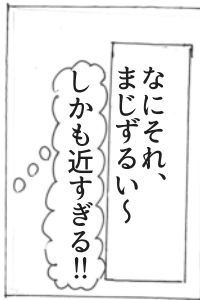 なにそれ、
まじずるい〜
しかも近すぎる!!